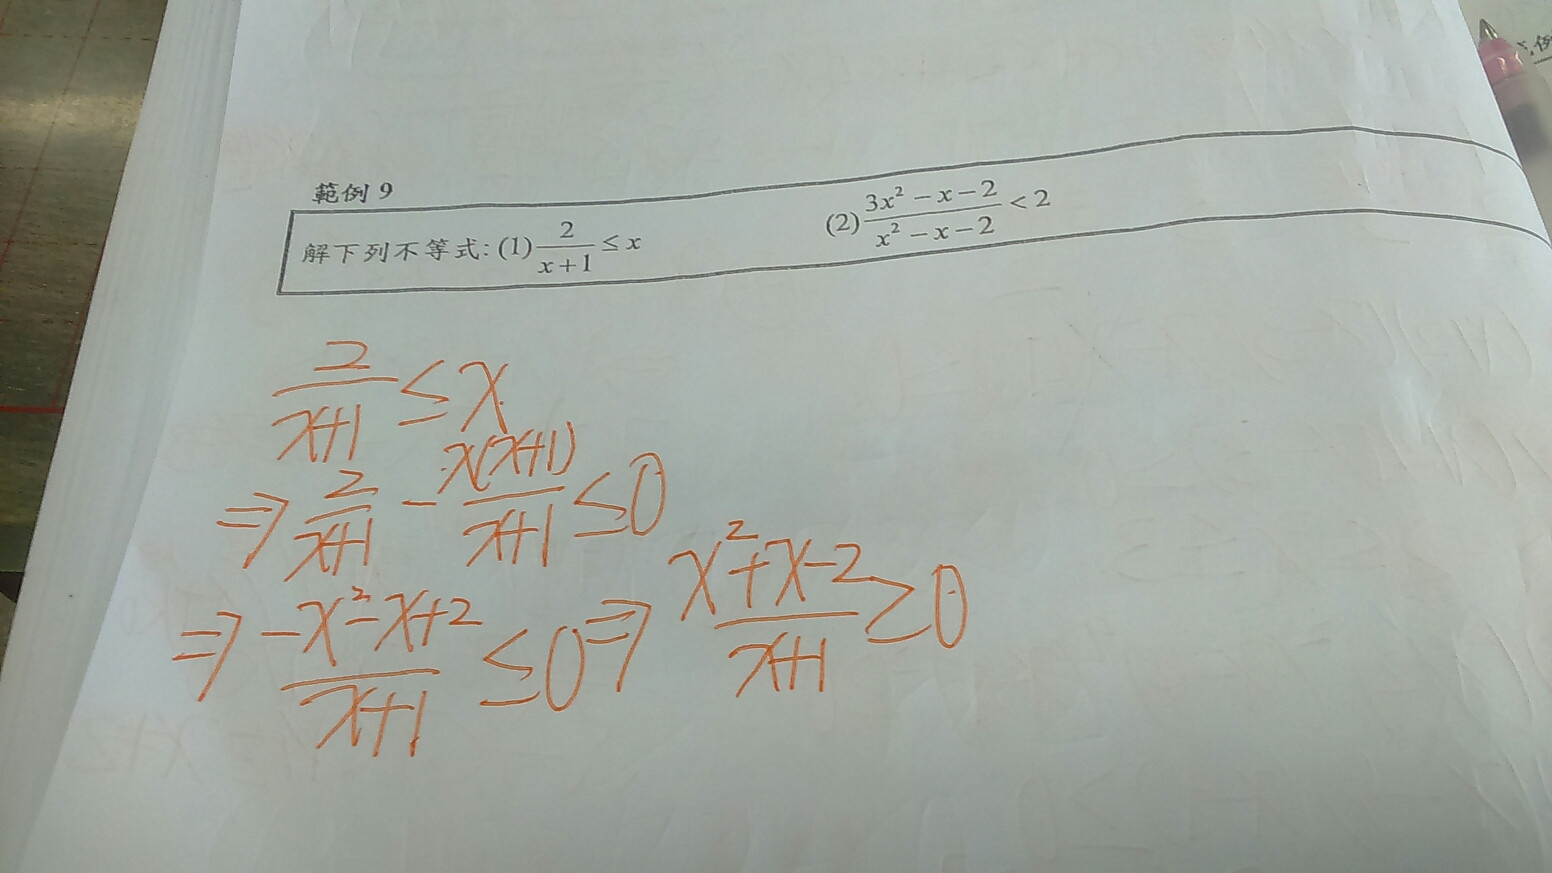 範例 9
解下列不等式: (1) \frac{2}{x+1} ≤ x (2) \frac{3x² - x - 2}{x² - x - 2} < 2
\frac{2}{x+1} ≤ x
⇒ \frac{2}{x+1} - \frac{x(x+1)}{x+1} ≤ 0
⇒ \frac{-x²-x+2}{x+1} ≤ 0 ⇒ \frac{x²+x-2}{x+1} ≥ 0